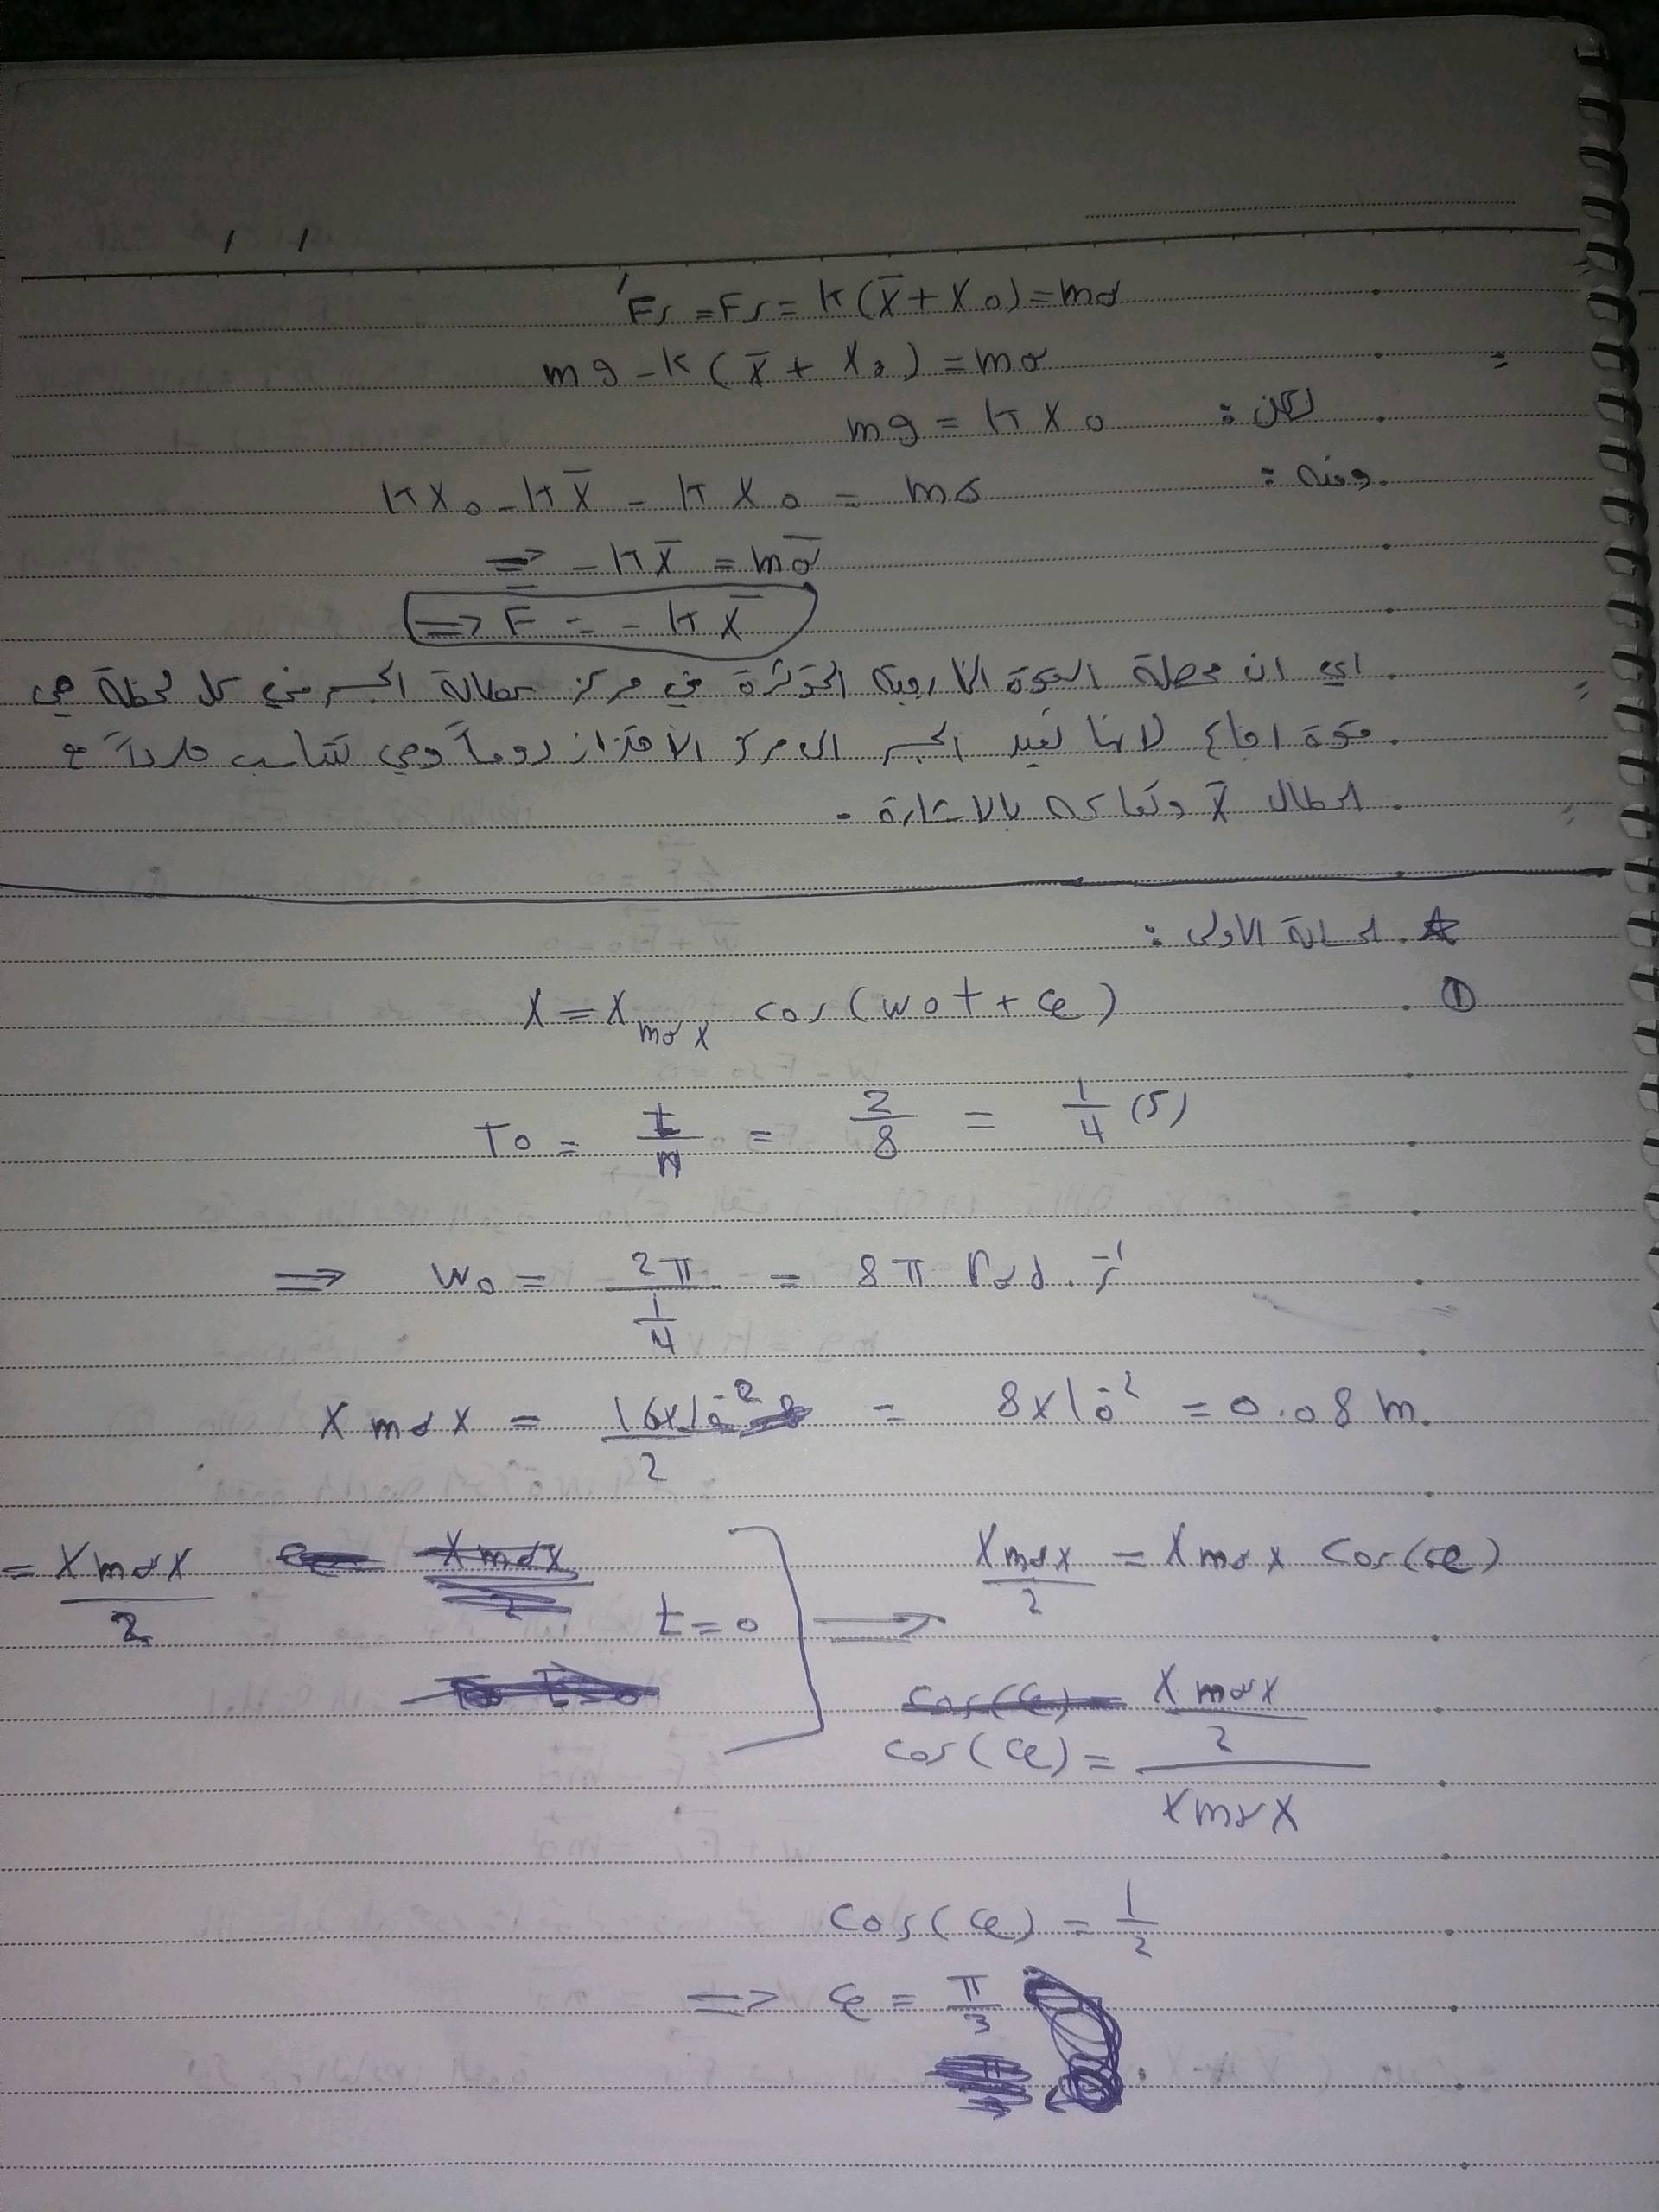 / /
F's = Fs = k(x̄ + x0) = ma
mg - k(x̄ + x0) = ma
لكن : mg = k x0
ومنه : kx0 - kx̄ - kx0 = ma
⇒ - kx̄ = mā
⇒ F = - kx̄
اي ان محصلة القوة الخارجية المؤثرة في مركز عطالة الجسم في كل لحظة هي
قوة ارجاع لانها تعيد الجسم الى مركز الاهتزاز دوماً وهي تتناسب طرداً مع
المطال x̄ وتعاكسه بالاشارة .
☆ الحالة الاولى :
① X = Xmax cos(w0t + φ)
T0 = t/n = 2/8 = 1/4 (s)
⇒ w0 = 2π/(1/4) = 8π rad.s⁻¹
Xmax = 16x10⁻²/2 = 8x10⁻² = 0.08 m.
= Xmax/2 t=0 ] → Xmax/2 = Xmax cos(φ)
cos(φ) = (Xmax/2)/Xmax
cos(φ) = 1/2
⇒ φ = π/3